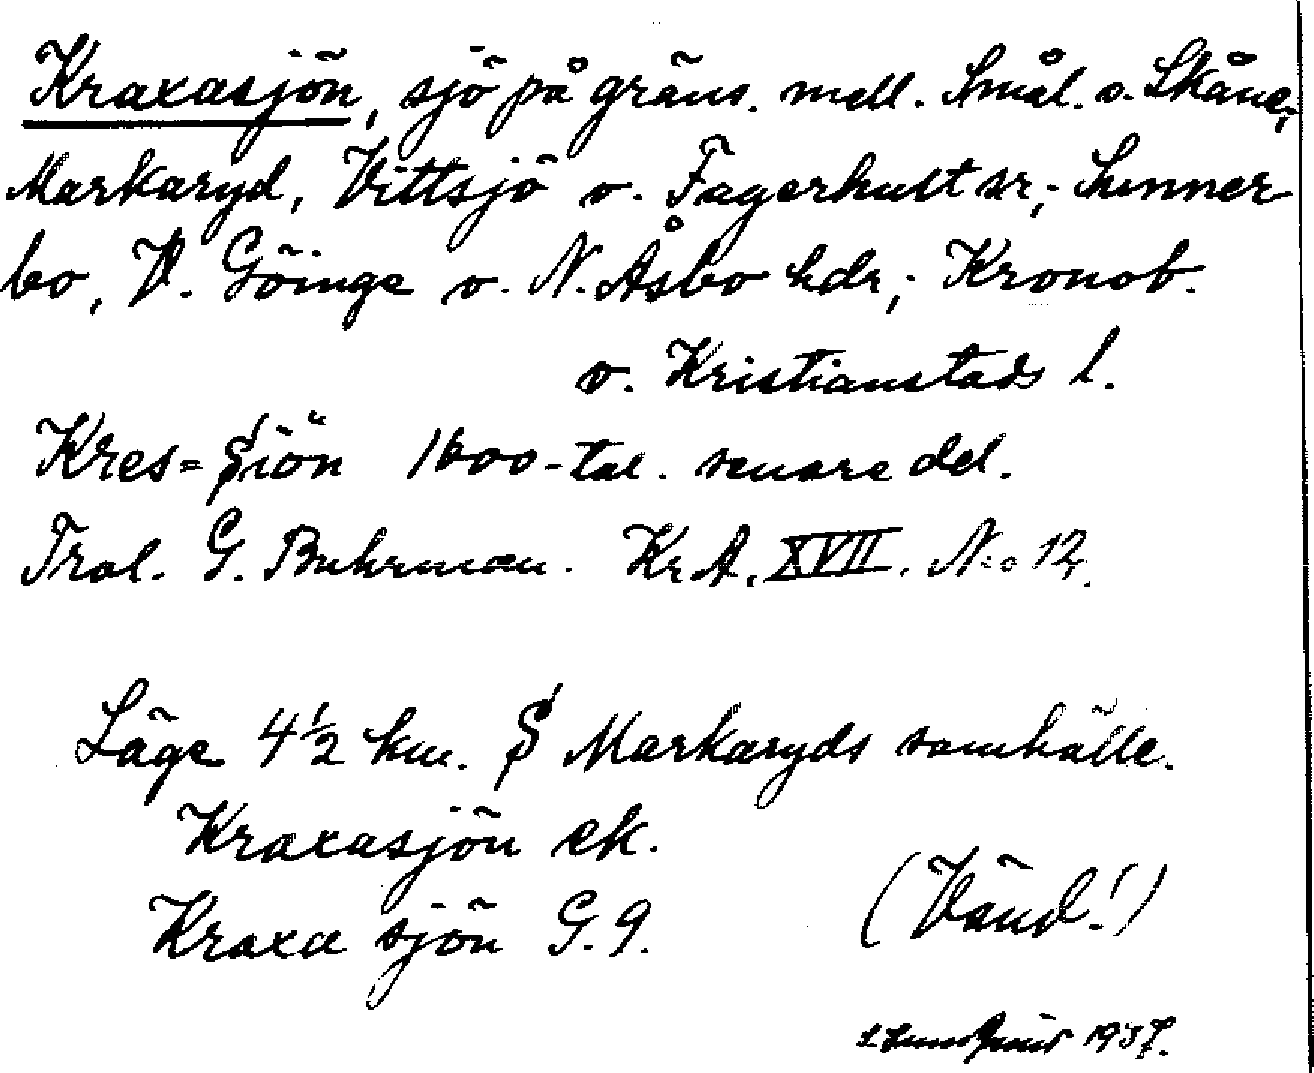 Kraxasjön, sjö på gräns. mell. Smål. o. Skåne;
Markaryd, Vittsjö o. Fagerhult sr; Sunner
bo, V. Göinge o. N. Åsbo hdr; Kronob.
o. Kristianstads l.
Kres=Siön 1600-tal. senare del.
Trol. G. Buhrman. KrA. XVII. No 12.
Läge 4½ km. S Markaryds samhälle.
Kraxasjön ek.
Kraxa sjön G.9.
(Vänd!)
1937.